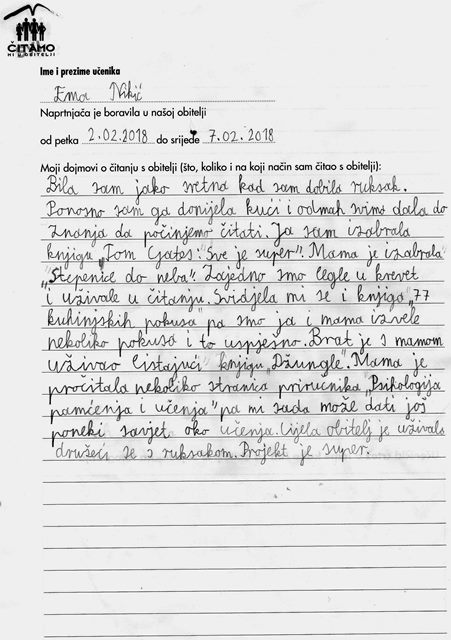 ČITAMO
MI U OBITELJI
Ime i prezime učenika
Ema Nikić
Naprtnjača je boravila u našoj obitelji
od petka 2.02.2018 do srijede 7.02.2018
Moji dojmovi o čitanju s obitelji (što, koliko i na koji način sam čitao s obitelji):
Bila sam jako sretna kad sam dobila ruksak.
Ponosno sam ga donijela kući i odmah svima dala do
znanja da počinjemo čitati. Ja sam izabrala
knjigu „Tom Gates: Sve je super". Mama je izabrala
„Stepenice do neba". Zajedno smo legle u krevet
i uživale u čitanju. Svidjela mi se i knjiga „77
kuhinjskih pokusa" pa smo ja i mama izvele
nekoliko pokusa i to uspješno. Brat je s mamom
uživao listajući knjigu „Džungle". Mama je
pročitala nekoliko stranica priručnika „Psihologija
pamćenja i učenja" pa mi sada može dati još
poneki savjet oko učenja. Cijela obitelj je uživala
družeći se s ruksakom. Projekt je super.